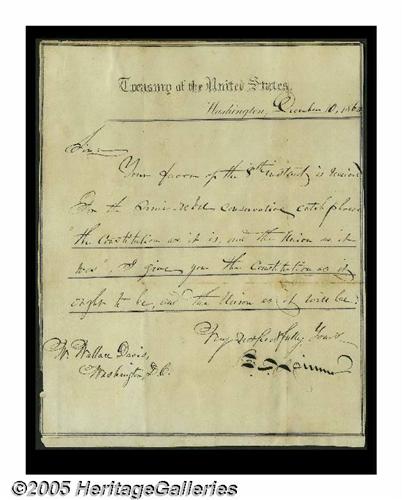 Treasury of the United States.
Washington, December 10, 186
Sir:
Your favor of the 8th instant is received
For the semi-rebel conservative catch phrase
"the Constitution as it is, and the Union as it
was", I give you "the Constitution as it
ought to be, and the Union as it will be."
Very respectfully Yours
W. Wallace Davis,
Washington D.C.
©2005 HeritageGalleries